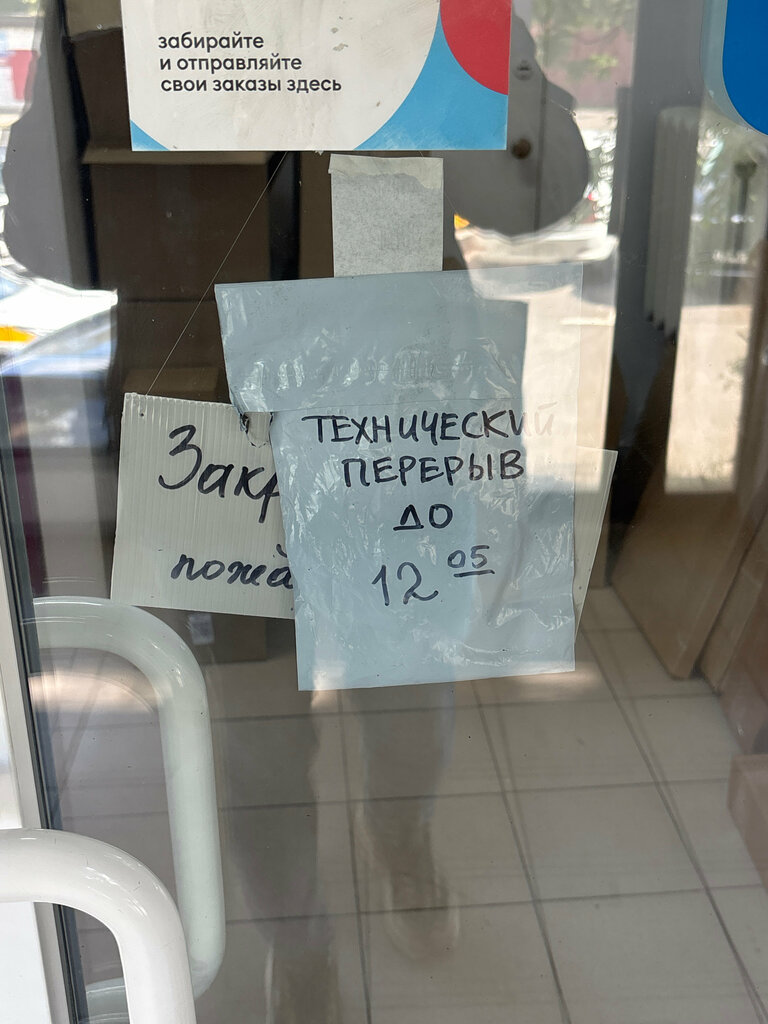 забирайте
и отправляйте
свои заказы здесь
ТЕХНИЧЕСКИЙ
ПЕРЕРЫВ
ДО
12 05
Закр
пожа